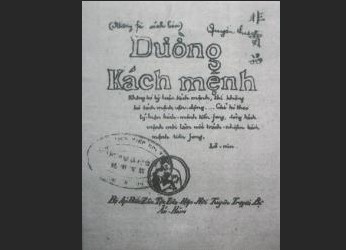 非賣品
Đường
Kách mệnh
Không có lý luận kách mệnh, thì không
có kách mệnh vận động... Chỉ có theo
lý luận kách mệnh tiền fong, đảng kách
mệnh mới làm nổi trách nhiệm kách
mệnh tiền fong.
Lê-nin.
Bị Áp Bức Dân Tộc Liên Hiệp Hội Tuyên Truyền Bộ